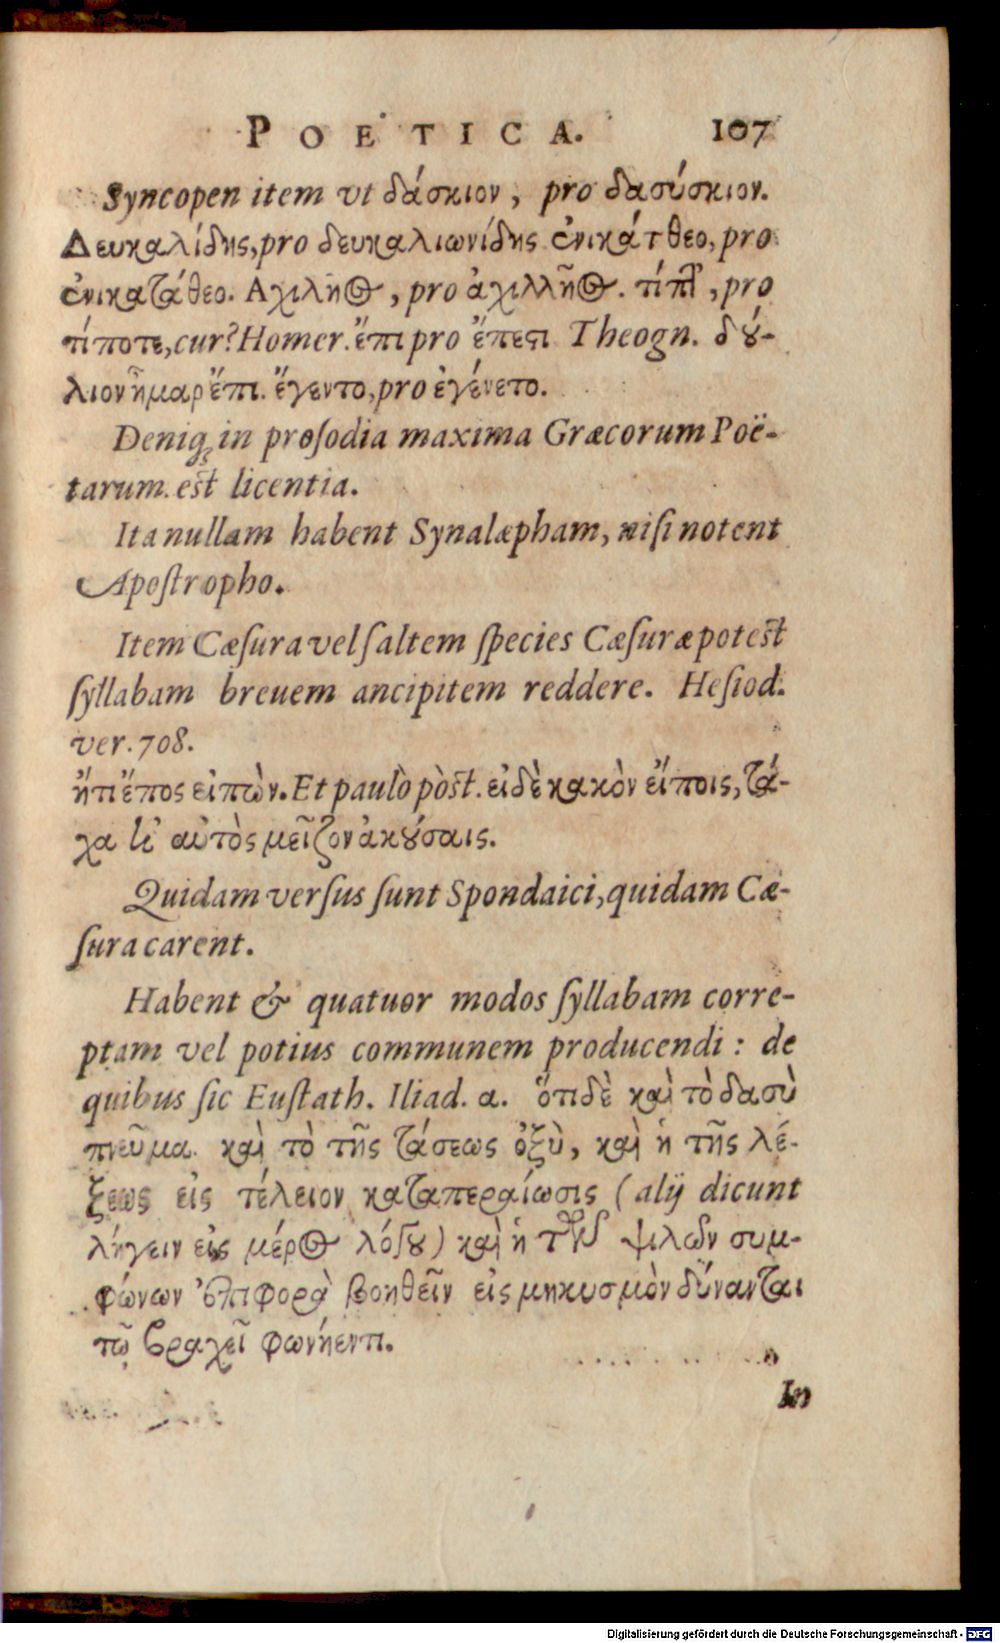 POETICA. 107
Syncopen item vt δάσκιον, pro δασύσκιον.
Δευκαλίδης, pro δευκαλιωνίδης ἐνικάτθεο, pro
ἐνικατάθεο. Αχιλῆος, pro ἀχιλλῆος. τίπτ', pro
τίποτε, cur? Homer. ἔπι pro ἔπεςι Theogn. δού-
λιον ἦμαρ ἔπι. ἔγεντο, pro ἐγένετο.
Deniq; in prosodia maxima Græcorum Poë-
tarum est licentia.
Ita nullam habent Synalæpham, nisi notent
Apostropho.
Item Cæsura vel saltem species Cæsuræ potest
syllabam breuem ancipitem reddere. Hesiod.
ver. 708.
ἤτι ἔπος εἰπὼν. Et paulò pòst. εἰ δὲ κακὸν εἴποις, τά-
χα κ' αὐτὸς μεῖζον ἀκούσαις.
Quidam versus sunt Spondaici, quidam Cæ-
sura carent.
Habent & quatuor modos syllabam corre-
ptam vel potius communem producendi: de
quibus sic Eustath. Iliad. α. ὅτι δὲ καὶ τὸ δασὺ
πνεῦμα καὶ τὸ τῆς τάσεως ὀξὺ, καὶ ἡ τῆς λέ-
ξεως εἰς τέλειον καταπεραίωσις (alij dicunt
λήγειν εἰς μέρος λόγου) καὶ ἡ τῶν ψιλῶν συμ-
φώνων ἐπιφορὰ βοηθεῖν εἰς μηκυσμὸν δύνανται
τῷ βραχεῖ φωνήεντι.
In
Digitalisierung gefördert durch die Deutsche Forschungsgemeinschaft - DFG